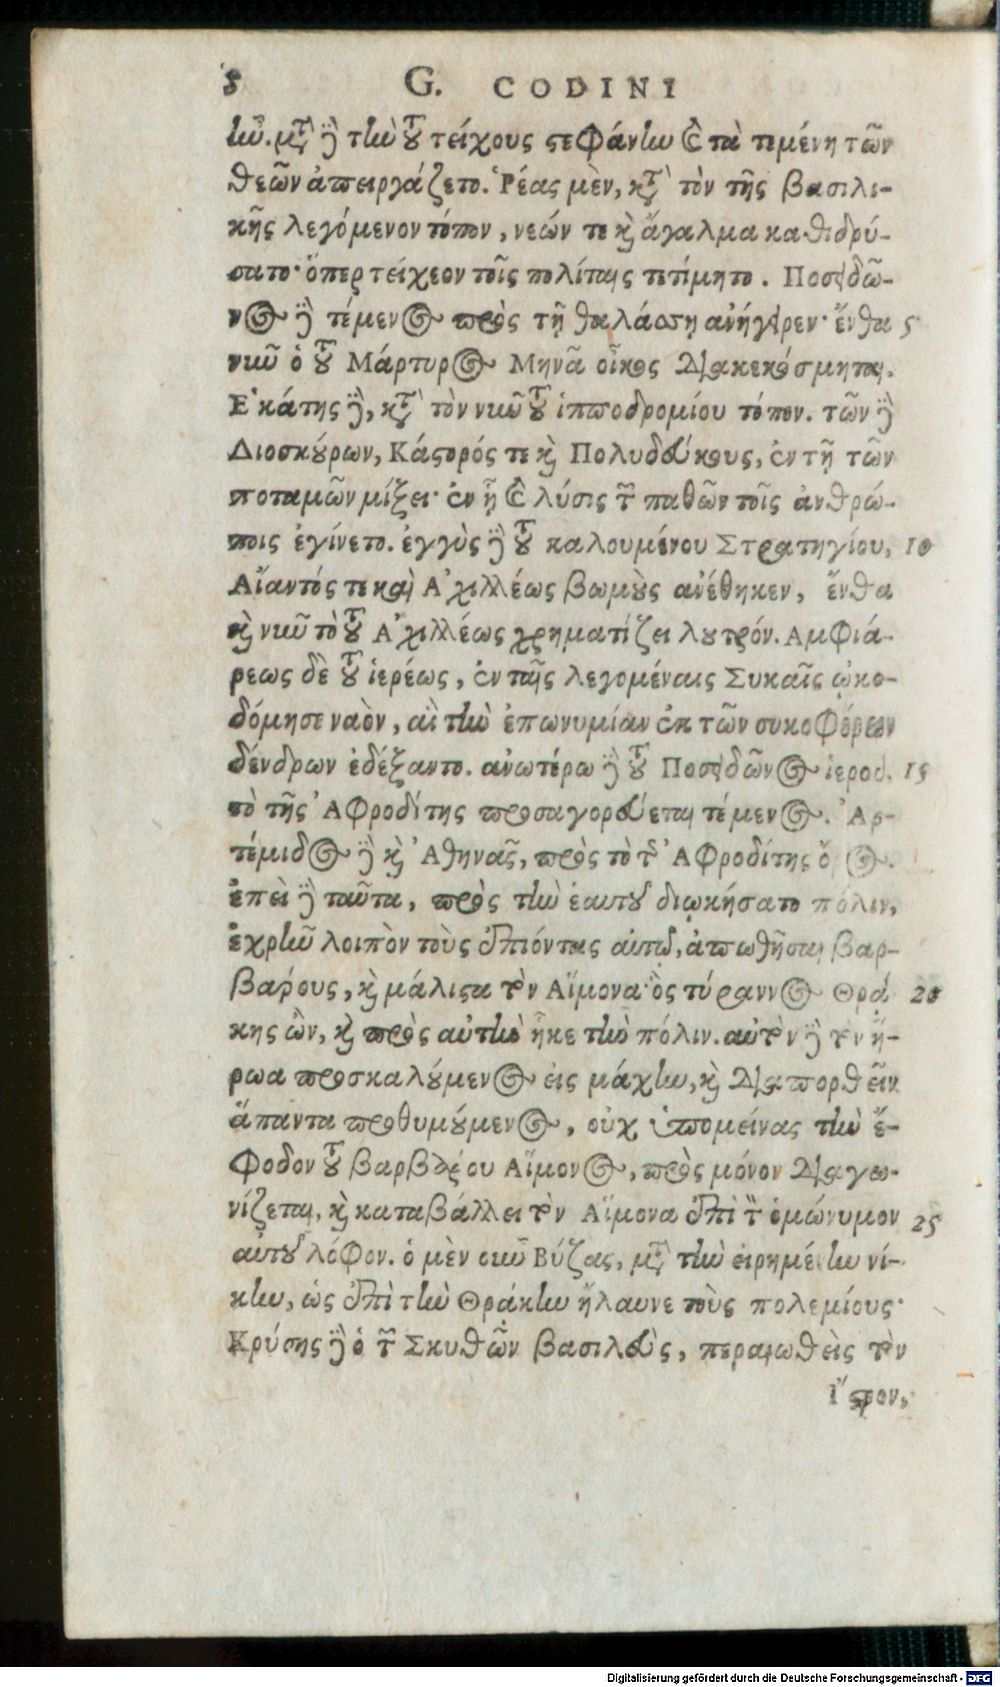 8 G. CODINI
ἦν. μετὰ δὲ τὴν τοῦ τείχους στεφάνην καὶ τὰ τεμένη τῶν
θεῶν ἀπειργάζετο. Ῥέας μὲν, κατὰ τὸν τῆς βασιλι-
κῆς λεγόμενον τόπον, νεών τε καὶ ἄγαλμα καθιδρύ-
σατο· ὅπερ τείχεον τοῖς πολίταις τετίμητο. Ποσειδῶ-
νος δὲ τέμενος πρὸς τῇ θαλάσσῃ ἀνήγειρεν· ἔνθα 5
νῦν ὁ τοῦ Μάρτυρος Μηνᾶ οἶκος διακεκόσμηται.
Ἑκάτης δὲ, κατὰ τὸν νῦν τοῦ ἱπποδρομίου τόπον. τῶν δὲ
Διοσκούρων, Κάστορός τε καὶ Πολυδεύκους, ἐν τῇ τῶν
ποταμῶν μίξει· ἐν ᾗ καὶ λύσις τῶν παθῶν τοῖς ἀνθρώ-
ποις ἐγίνετο. ἐγγὺς δὲ τοῦ καλουμένου Στρατηγίου, 10
Αἴαντός τε καὶ Ἀχιλλέως βωμοὺς ἀνέθηκεν, ἔνθα
καὶ νῦν τὸ τοῦ Ἀχιλλέως χρηματίζει λουτρόν. Αμφιά-
ρεως δὲ τοῦ ἱερέως, ἐν ταῖς λεγομέναις Συκαῖς ᾠκο-
δόμησε ναὸν, αἳ τὴν ἐπωνυμίαν ἐκ τῶν συκοφόρων
δένδρων ἐδέξαντο. ἀνωτέρω δὲ τοῦ Ποσειδῶνος ἱεροῦ. 15
τὸ τῆς Ἀφροδίτης προσαγορεύεται τέμενος. Ἀρ-
τέμιδος δὲ καὶ Ἀθηνᾶς, πρὸς τὸ τῆς Ἀφροδίτης ὄρος.
ἐπεὶ δὲ ταῦτα, πρὸς τὴν ἑαυτοῦ διῳκήσατο πόλιν,
ἐχρῆν λοιπὸν τοὺς ἐπιόντας αὐτῷ, ἀπωθῆσαι βαρ-
βάρους, καὶ μάλιστα τὸν Αἵμονα· ὃς τύραννος Θρά- 20
κης ὢν, καὶ πρὸς αὐτὴν ἧκε τὴν πόλιν. αὐτὸν δὲ τὸν ἥ-
ρωα προσκαλούμενος εἰς μάχην, καὶ διαπορθεῖν
ἅπαντα προθυμούμενος, οὐχ ὑπομείνας τὴν ἔ-
φοδον τοῦ βαρβάρου Αἵμονος, πρὸς μόνον διαγω-
νίζεται, καὶ καταβάλλει τὸν Αἵμονα ἐπὶ τὸν ὁμώνυμον 25
αὐτοῦ λόφον. ὁ μὲν οὖν Βύζας, μετὰ τὴν εἰρημένην νί-
κην, ὡς ἐπὶ τὴν Θράκην ἤλαυνε τοὺς πολεμίους·
Κρύσης δὲ ὁ τῶν Σκυθῶν βασιλεὺς, περαιωθεὶς τὸν
Ἴστρον,
Digitalisierung gefördert durch die Deutsche Forschungsgemeinschaft - DFG